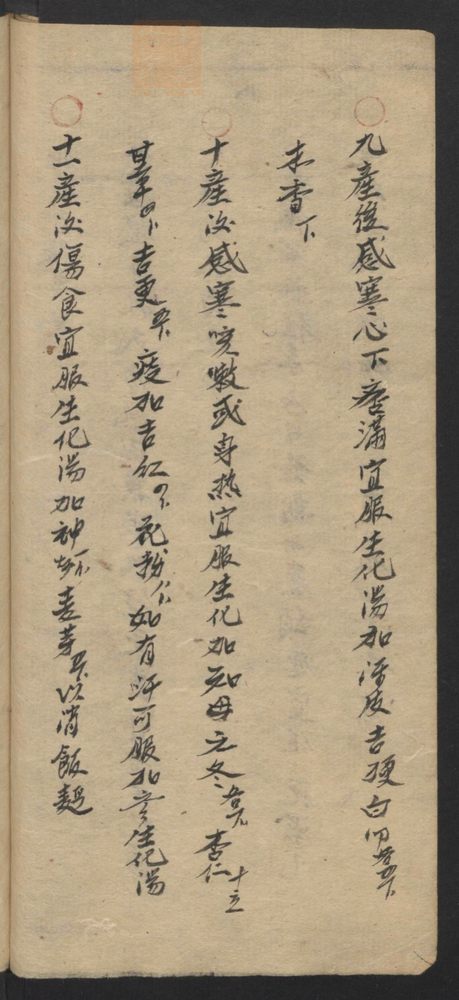 九產後感寒心下痞滿宜服生化湯加陳皮吉梗白
木香下
十產後感寒咳嗽或身熱宜服生化加知母元冬 杏仁十立
甘草 吉更 痰加吉紅 花粉 如有汗可服加 生化湯
十一產後傷食宜服生化湯加神 麦芽 以消飯麵